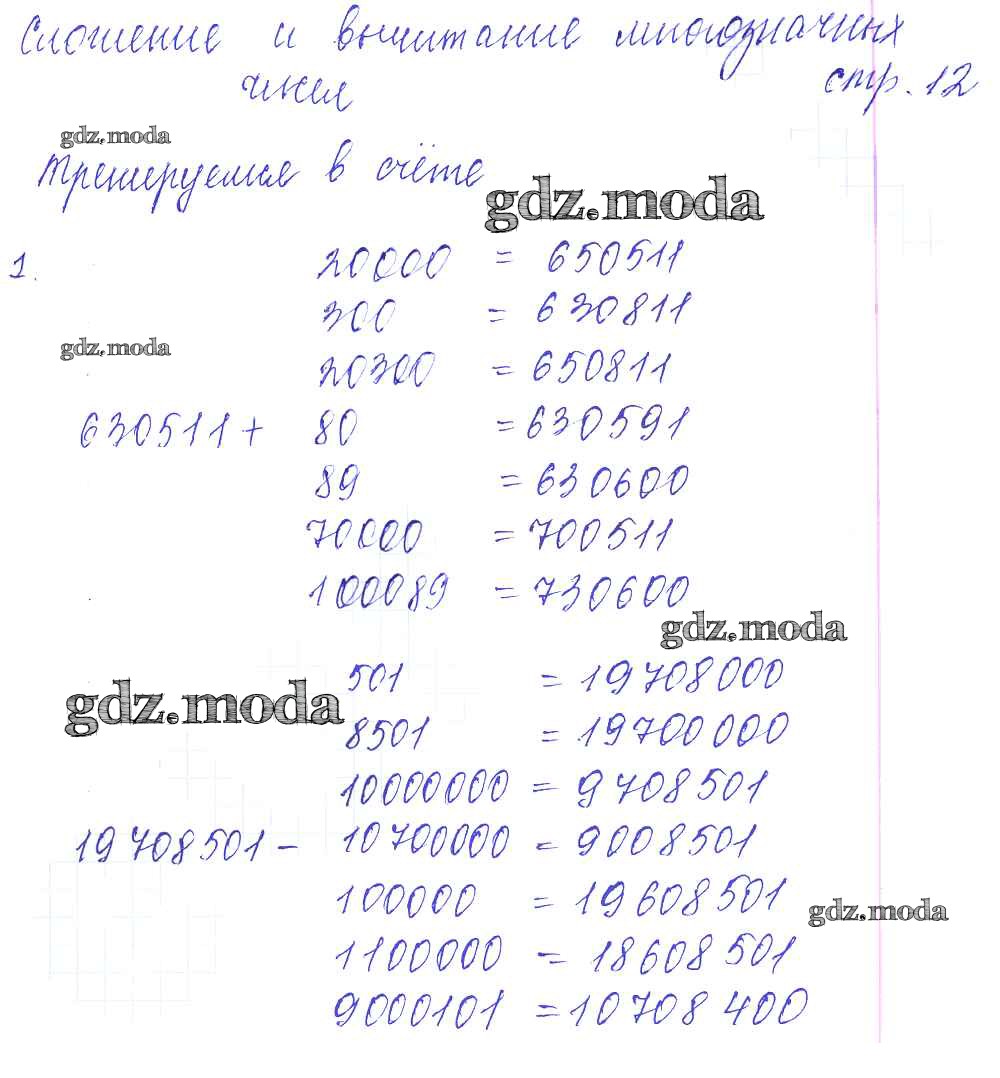 Сложение и вычитание многозначных
чисел
стр. 12
gdz.moda
Тренируемся в счёте
gdz.moda
1.
20000 = 650511
300 = 630811
gdz.moda
20300 = 650811
630511 + 80 = 630591
89 = 630600
70000 = 700511
100089 = 730600
gdz.moda
501 = 19708000
gdz.moda
8501 = 19700000
10000000 = 9708501
19708501 - 10700000 = 9008501
100000 = 19608501
gdz.moda
1100000 = 18608501
9000101 = 10708400